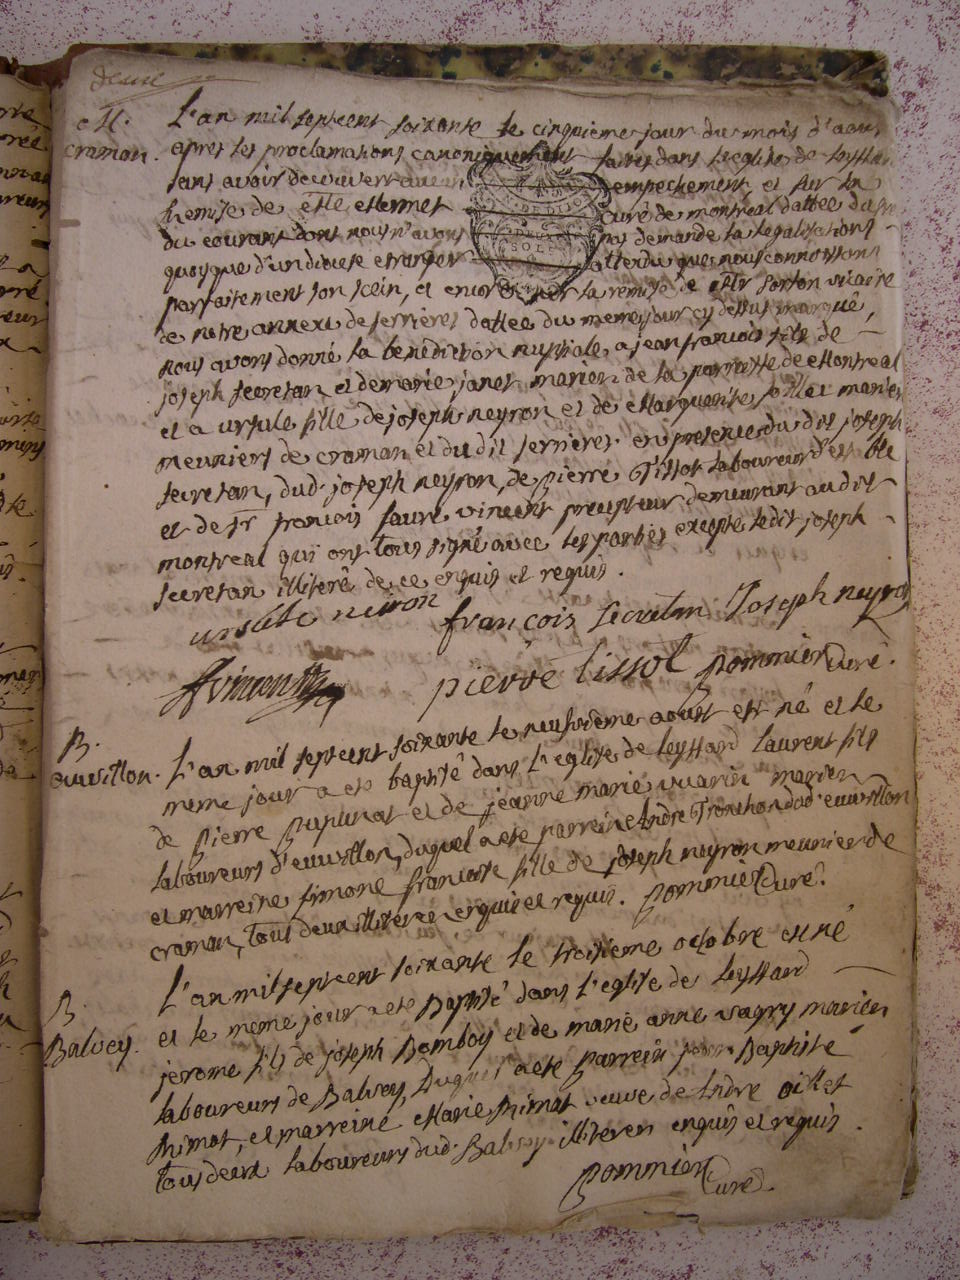 deux
M.
craman.
L'an mil septcent soixante le cinquieme jour du mois d'aout
apres les proclamations canoniquement faites dans l'eglise de leyssard
sans avoir decouvert aucun empechement et sur la
Remise de Mre curé de montreal dattée du
du courant dont nous n'avons pas demandé la legalisation
quoyque d'un diocese etranger attendu que nous connoissons
parfaitement son sein, et encore sur la remise de Mr sorton vicaire
de notre annexe de serrieres dattée du meme jour cy dessus marqué,
nous avons donné la benediction nuptiale a jean francois fils de
joseph secretan et de marie janet mariés de la parroisse de Montreal
et a ursule fille de joseph neyron et de Marguerite mariés
meuniers de craman et du dit serrieres en presence du dit joseph
secretan, dud. joseph neyron, de pierre Tissot laboureur
et de Sr francois faure vincent precepteur demeurant audit
montreal qui ont tous signé avec les parties excepté ledit joseph
secretan illiteré de ce enquis et requis.
ursule neiron françois Secretan Joseph neyron
fvincent pierre tissot pommier Curé.
B.
auvillon.
L'an mil septcent soixante le aoust est né et le
meme jour a eté baptisé dans l'eglise de leyssard laurent fils
de pierre pupunat et de jeanne marie vuarin mariés
laboureurs d'euvillon, duquel a eté parrein Andre Tronchon dud. euvillon
et marreine simone francoise fille de joseph neyron meunier de
craman, tout deux illiterés enquis et requis. pommier Curé.
B
Balvey.
L'an mil septcent soixante le troisieme octobre est né
et le meme jour a eté Baptisé dans l'eglise de leyssard
jerome fils de joseph Bomboy et de marie anne vagry mariés
laboureurs de Balvey, Duquel a eté parrein jean Baptiste
himot, et marreine Marie himot veuve de Andre oillet
tous deux laboureurs dud. Balvey illiterés enquis et requis.
pommier Curé.